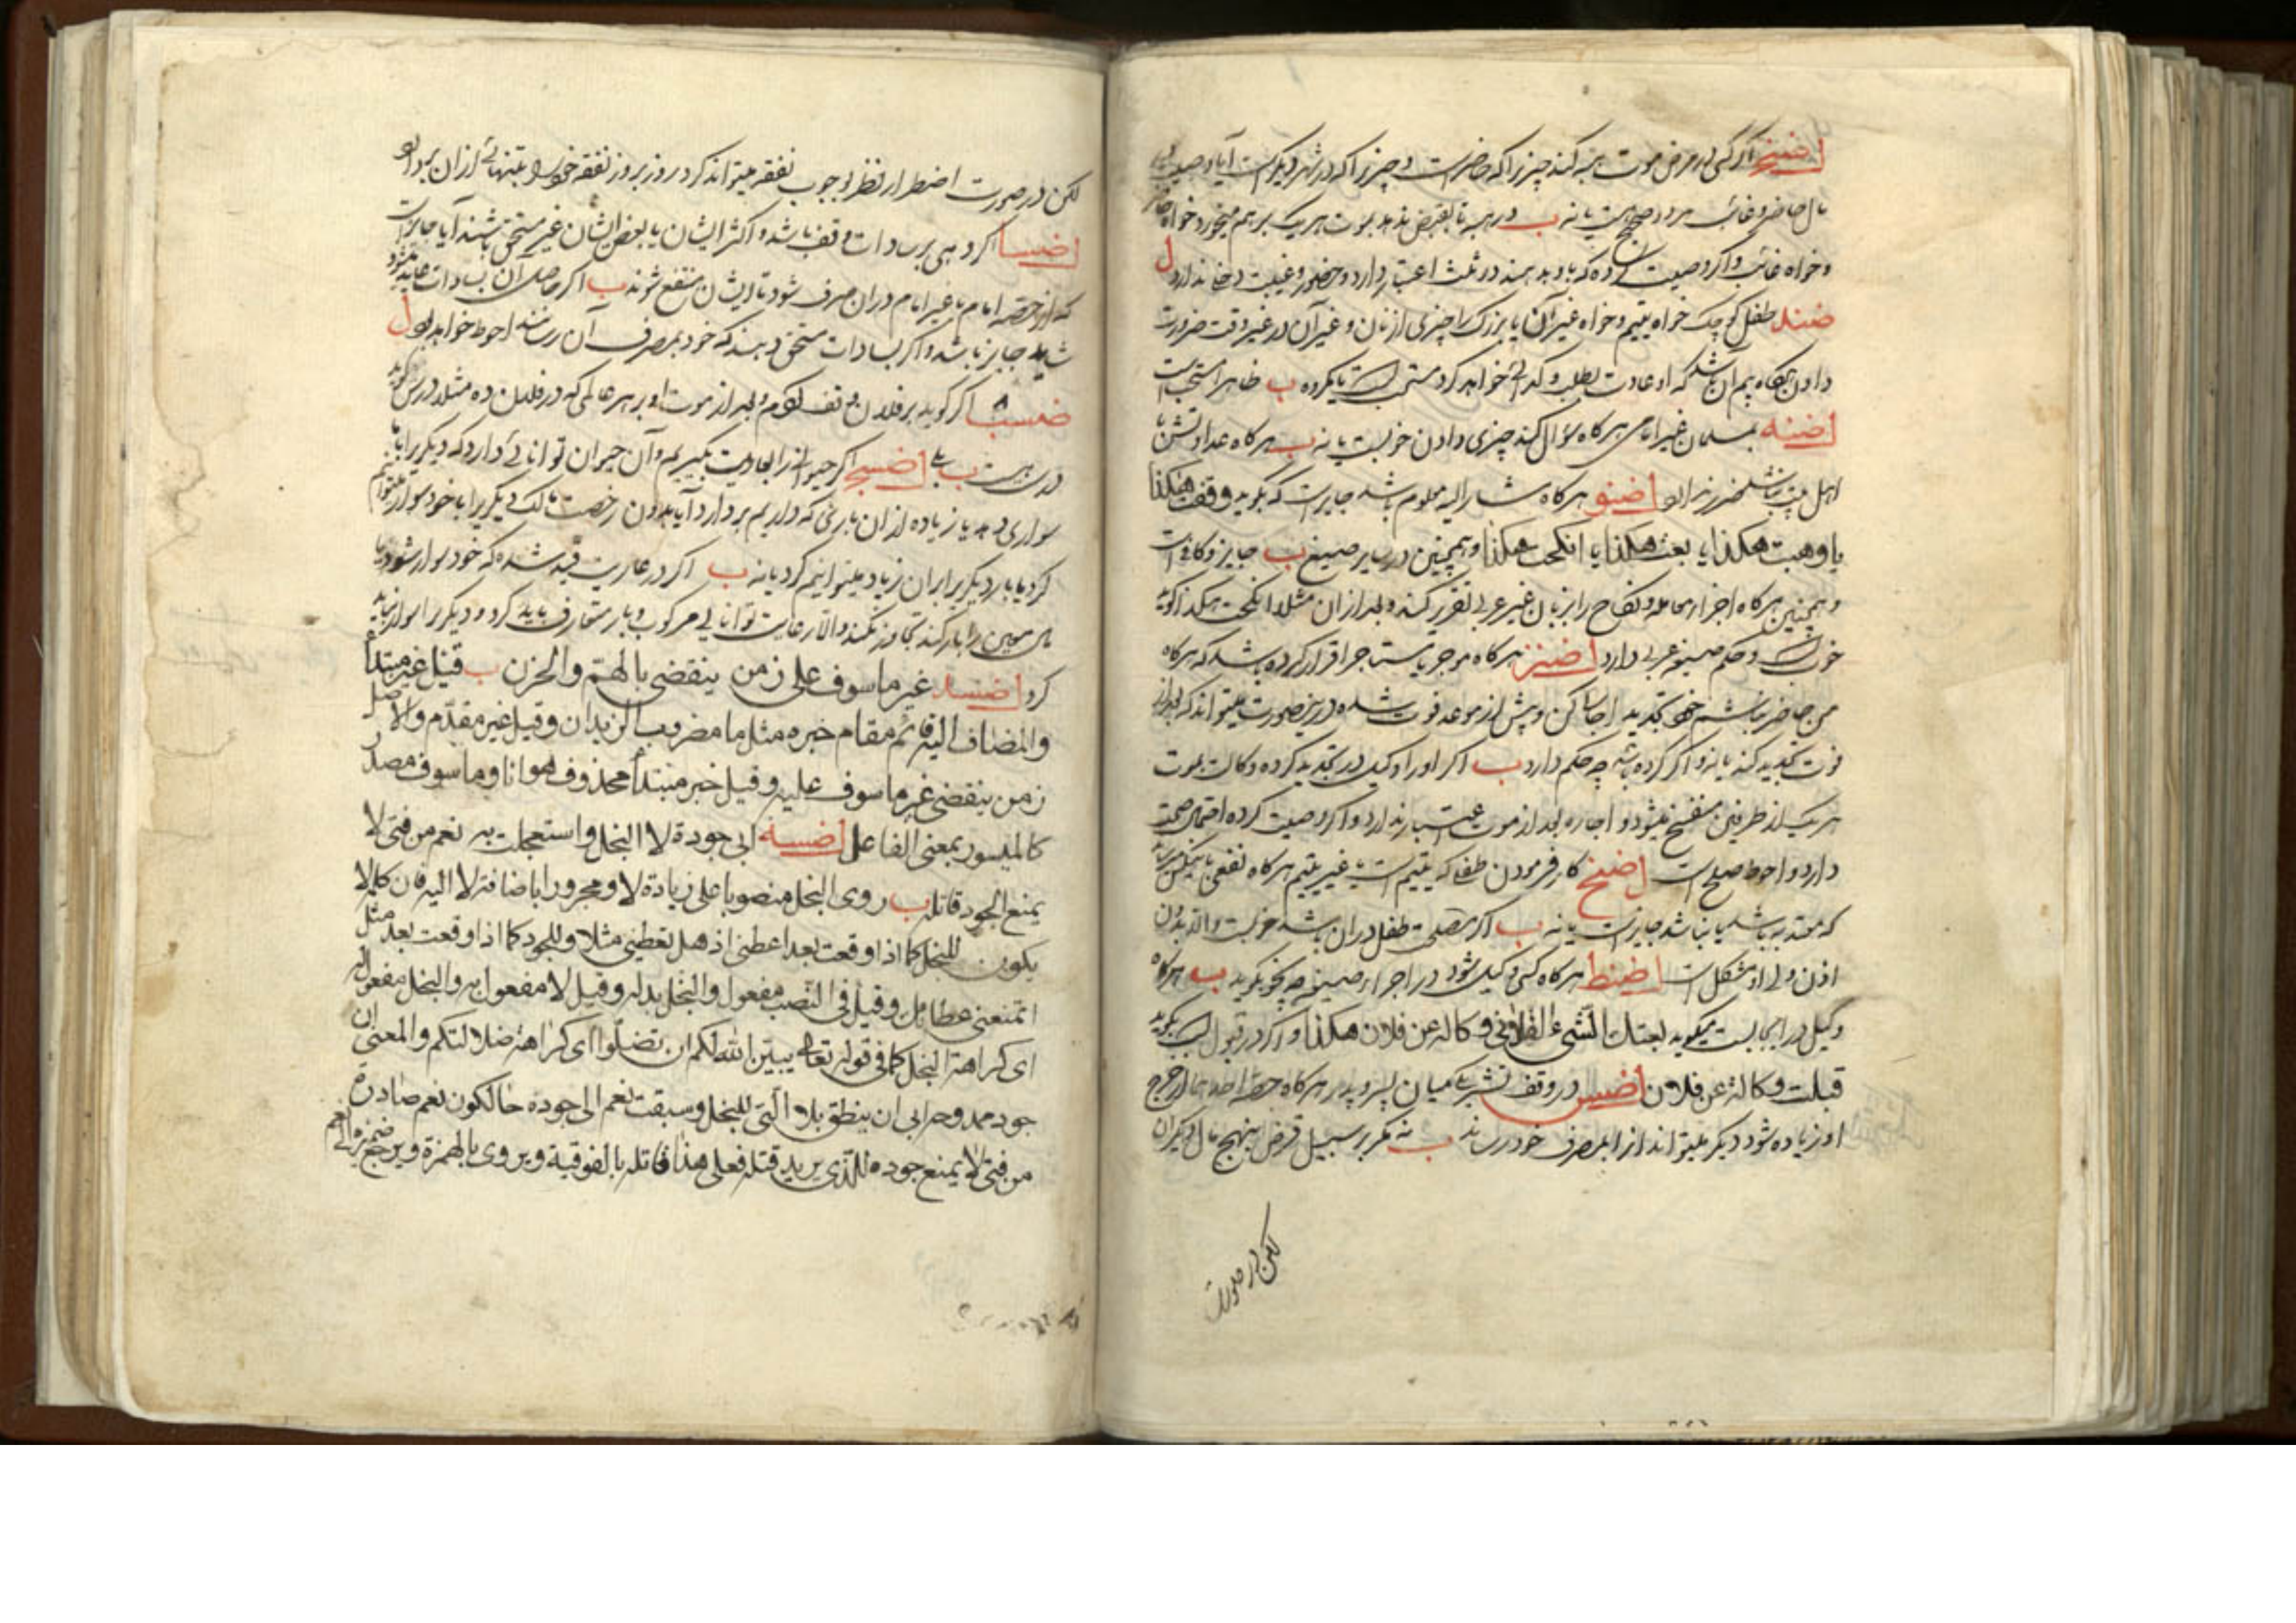 اضنج اگر کسی در مرض موت هبه کند چیزی را که حاضرست و چیزی را که در شهر دیگرست آیا وصیت
مال حاضر و غائب هر دو صحیح است یا نه ب در هبه تا بقبض ندهد بموت هر یک بر هم میخورد خواه حاضر
و خواه غائب و اگر وصیت کرده که باو بدهند در ثلث اعتبار دارد و حضور و غیبت دخلی ندارد
اضند طفل کوچک خواه یتیم و خواه غیر آن یا بزرگ را چیزی از نان و غیر آن در غیر وقت ضرورت
دادن هرگاه بیم آن باشد که او عادت بطلب و گدائی خواهد کرد مستحب است یا مکروه ب ظاهرا مستحب است
اضنه مسلمان غیر امامی هرگاه سؤال کند چیزی دادن خوبست یا نه ب هرگاه عداوتش با
اهل بیت نباشد ضرر ندارد اضنو هرگاه مشار الیه معلوم باشد جایزست که بگوید وقفت هکذا
یا وهبت هکذا یا بعت هکذا یا انکحت هکذا و همچنین در سایر صیغ ب جایز و کافی است
و همچنین هرگاه اجزاء معامله و نکاح را بزبان غیر عربی تقریر کنند و بعد از آن مثلا انکحت هکذا گوید
خوبست و حکم صیغه عربی دارد اضنز هرگاه موجر با مستاجر اقرار کرده باشد که هرگاه
من حاضر نباشم خود تجدید اجاره کن و پیش از موعد فوت شده در ینصورت میتواند که بعد از
فوت تجدید کند یا نه و اگر کرده باشد چه حکم دارد ب اگر او را وکیل در تجدید کرده وکالت بموت
هر یک از طرفین منفسخ میشود و اجاره بعد از موت اعتبار ندارد و اگر وصیت کرده احتمال صحت
دارد و احوط صلح است اضنح کار فرمودن طفلی که یتیم است یا غیر یتیم هرگاه نفعی
که معتد به باشد یا نباشد جایزست یا نه ب اگر مصلحت طفل در آن باشد خوبست والا بدون
اذن ولی او مشکل است اضنط هرگاه کسی وکیل شود در اجراء صیغه چه نحو بگوید ب هرگاه
وکیل در ایجابست میگوید بعتک الشیء الفلانی وکالة عن فلان هکذا و اگر در قبول است بگوید
قبلت وکالة عن فلان اضس در وقف تشریک میان پسر و پدر هرگاه حصه احدهما از خرج
او زیاده شود دیگر میتواند از آن بمصرف خود رساند ب نه مگر بر سبیل قرض بنهج مال دیگران
لکن در صورت
لکن در صورت اضطرار نظر بوجوب نفقه میتواند کرد روز بروز نفقه خود را بتنهائی از آن بردارد
اضسا اگر دهی بر سادات وقف باشد و اکثر ایشان یا بعض ایشان غیر مستحق باشند آیا جایزست
که از حصه امام یا غیر امام در آن صرف شود تا ایشان منتفع شوند ب اگر حاصل آن بسادات عاید میشود
شاید جایز باشد و اگر بسادات مستحق دهند که خود بمصرف آن رسانند احوط خواهد بود
اضسب اگر گوید بر فلان وقف کردم و بعد از موت او بر هر عالمی که در فلان ده مثلا درس گوید
درست هست ب بلی اضسج اگر حیوانی را بعاریت بگیریم و آن حیوان توانائی دارد که دیگری را با ما
سواری دهد یا زیاده از آن باری که داریم بردارد آیا بدون رخصت مالک دیگری را با خود سوار میتوانیم
کرد یا بار دیگری را بر آن زیاد میتوانیم کرد یا نه ب اگر در عاریت قید شده که خود سوار شود یا
بار معین را بار کند تجاوز نکند والا رعایت توانایی مرکوب و بار متعارف باید کرد و دیگری را سوار نباید
کرد اضسد غیر ماسوف علی زمن ینقضی بالهم والحزن ب قیل غیر مبتدأ
والمضاف الیه قائم مقام خبره مثل ما مضروب الزیدان وقیل غیر مقدم والاصل
زمن ینقضی غیر ماسوف علیه وقیل خبر مبتدأ محذوف هو انا وماسوف مصدر
کالمیسور بمعنی الفاعل اضسه ابی جوده لا البخل واستعجلت به نعم من فتی لا
یمنع الجود قاتله ب روی البخل منصوبا علی زیادة لا ومجرورا باضافة لا الیه فان کلمة لا
یکون للبخل کما اذا وقعت بعد اعطنی او هل تعطینی مثلا وللجود کما اذا وقعت بعد مثل
اتمنعنی عطاءک وقیل فی النصب مفعول والبخل بدله وقیل لا مفعول به والبخل مفعول له
ای کراهة البخل کما فی قوله تعالی یبین الله لکم ان تضلوا ای کراهة ضلالتکم والمعنی ان
جود ممدوحی ابی ان ینطق بلا التی للبخل وسبقت نعم الی جوده حالکون نعم صادرة
من فتی لا یمنع جوده للذی یرید قتله فعلی هذا قاتله بالفوقیة ویروی بالهمزة ویرجع ضمیره الی نعم